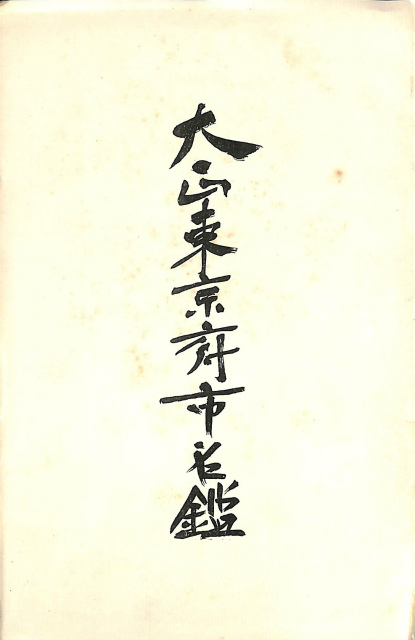 大正東京府市名鑑